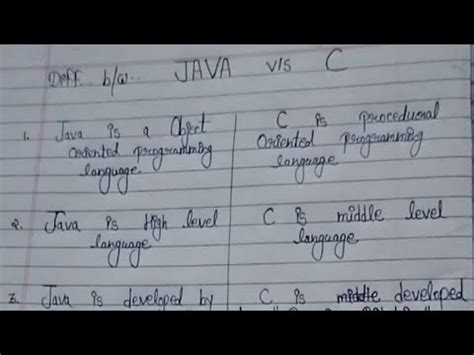 Deff. b/w.. JAVA v/s C
1. Java is a Object
oriented programming
language
C is procedural
oriented programming
language
2. Java is High level
language
C is middle level
language
3. Java is developed by
C is middle developed